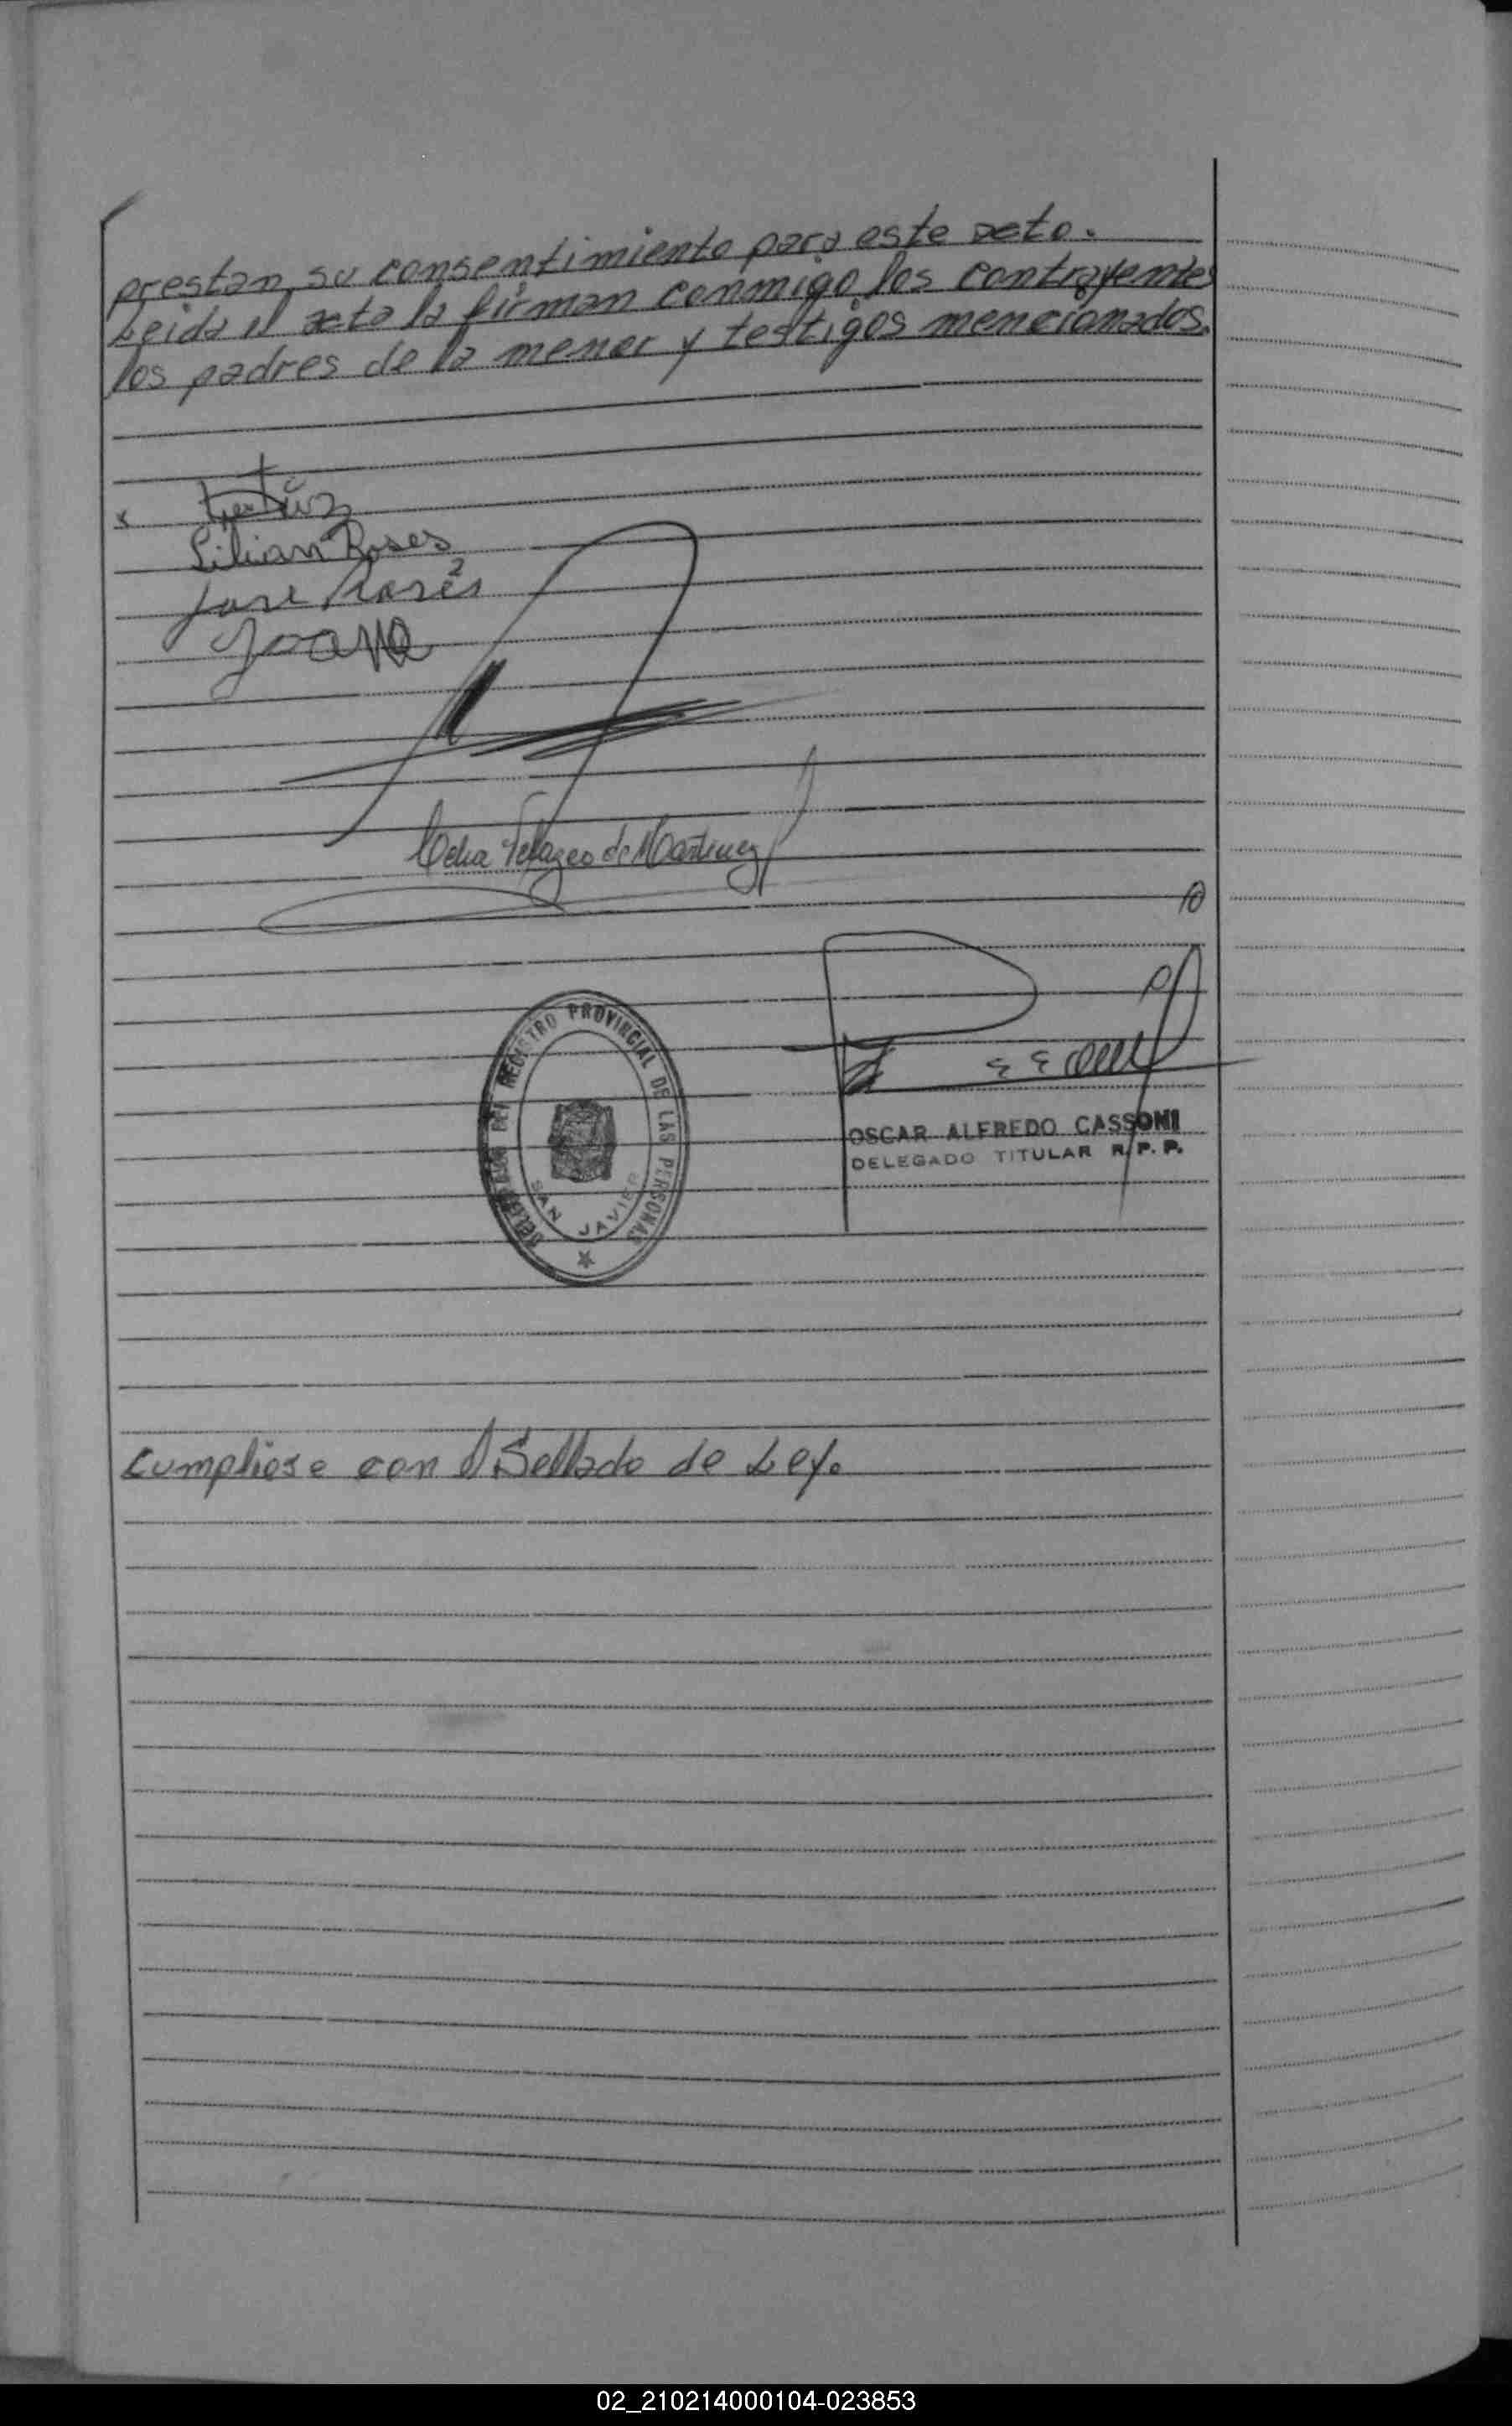 prestan su consentimiento para este acto.
Leida el acta la firman conmigo los contrayentes
los padres de la menor y testigos mencionados.
Lilian Roses
Jose Rosés
Joana
Celia Velazco de Martinez
DELEGACION DEL REGISTRO PROVINCIAL DE LAS PERSONAS
SAN JAVIER
OSCAR ALFREDO CASSONI
DELEGADO TITULAR R.P.P.
Cumpliose con el Sellado de Ley.
02_210214000104-023853